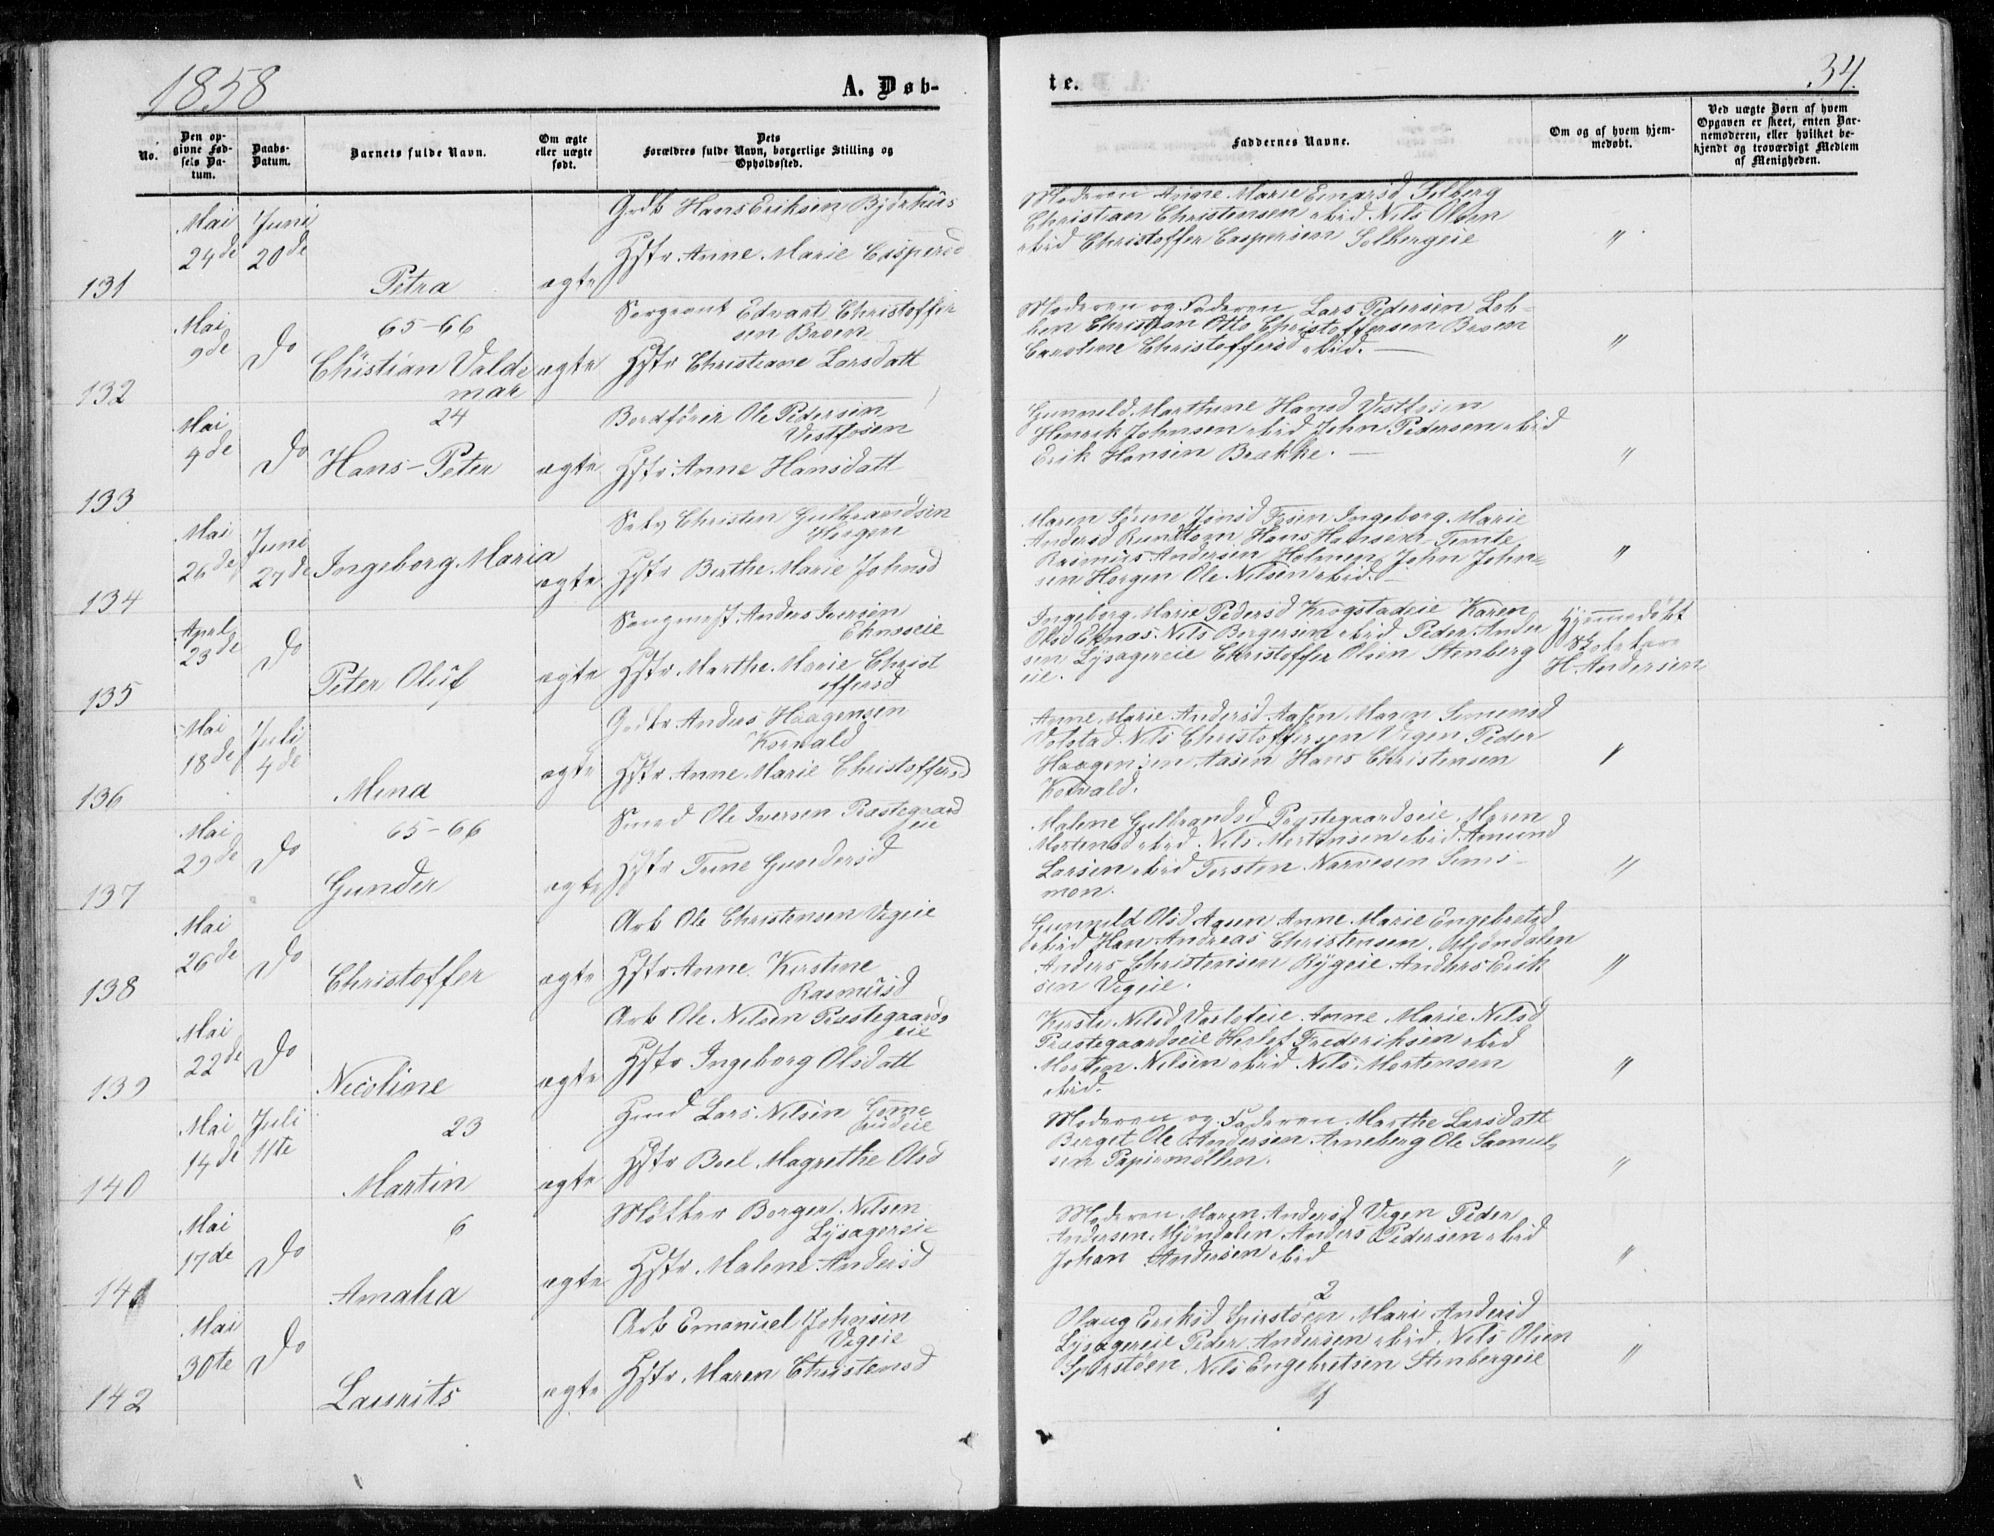 1858
A. Døb-
te.
34.
No.
Den op-
givne Fød-
sels Da-
tum.
Daabs-
Datum.
Barnets fulde Navn.
Om ægte
eller uægte
født.
Dets
Forældres fulde Navn, borgerlige Stilling og
Opholdssted.
Faddernes Navne.
Om og af hvem hjem-
medøbt.
Ved uægte Børn af hvem
Opgaven er skeet, enten Bar-
nemoderen, eller hvilket be-
kjendt og troværdigt Medlem
af Menigheden.
131
Mai
24de
Juni
20de
Petra
ægte
Grdb Hans Eriksen Bjørhuus
Hstr Anne Marie Caspersd
Moderen Anne Marie Einarsd Solberg
Christian Christensen ibid Nils Olsen
ibid Christoffer Caspersen Solbergeie
"
132
Mai
9de
Do
65-66
Christian Valde
mar
ægte
Sergeant Edvart Christoffer
sen Braen
Hstr Christiane Larsdatt
Moderen og Faderen Lars Pedersen Lob-
ben Christian Otto Christoffersen Braen
Caroline Christoffersd ibid.
"
133
Mai
4de
Do
24
Hans-Peter
ægte
Bordfører Ole Pedersen
Vestfosen
Hstr Anne Hansdatt
Gunneld Marthine Hansd Vestfosen
Henrik Johnsen ibid John Pedersen ibid
Erik Hansen Brække.
"
134
Mai
26de
Juni
27de
Ingeborg Maria
ægte
Selv Christen Gulbrandsen
Horgen
Hstr Berthe Marie Johnsd
Maren Sørine Jonsd Fosen Ingeborg Marie
Andersd Rundtom Hans Hansen Temte
Rasmus Andersen Holmen John John-
sen Horgen Ole Nilsen ibid.
"
135
April
23de
Do
Peter Oluf
ægte
Saugmest Anders Iversen
Eknæseie
Hstr Marthe Marie Christ
offersd
Ingeborg Marie Pedersd Krogstadeie Karen
Olsd Eknæs Nils Borgersen ibid Peder Ander
sen Lysagereie Christoffer Olsen Stenberg
eie.
Hjemmedøbt
H. Andersen
136
Mai
18de
Juli
4de
Mina
ægte
Grdbr Anders Haagensen
Korvald
Hstr Anne Marie Christoffersd
Anne Marie Andersd Aasen Maren Simensd
Volstad Nils Christoffersen Vegen Peder
Haagensen Aasen Hans Christensen
Korvald.
"
137
Mai
29de
Do
65-66
Gunder
ægte
Smed Ole Iversen Præstegaard
eie
Hstr Tine Gundersd
Malene Gulbrandsd Præstegaardseie Maren
Mortensd ibid Nils Mortensen ibid Amund
Larsen ibid Torsten Narvesen Sems-
moen.
"
138
Mai
26de
Do
Christoffer
ægte
Arb Ole Christensen Vegeie
Hstr Anne Kirstine
Rasmusd
Gunneld Olsd Aasen Anne Marie Engebretsd
ibid Han Andreas Christensen Mjøndalen
Anders Christensen Rygeie Anders Erik
sen Vegeie.
"
139
Mai
22de
Do
Nicoline
ægte
Arb Ole Nilsen Præstegaards
eie
Hstr Ingeborg Olsdatt
Kirsti Nilsd Varloeie Anne Marie Nilsd
Præstegaardseie Herlof Frederiksen ibid
Morten Nilsen ibid Nils Mortensen
ibid.
"
140
Mai
14de
Juli
11te
23
Martin
ægte
Hmd Lars Nilsen
Hstr Boel Magrethe Olsd
Moderen og Faderen Marthe Larsdatt
Berget Ole Andersen Arneberg Ole Samuel-
sen Papirmøllen.
"
141
Mai
17de
Do
6
Amalia
ægte
Møller Borger Nilsen
Lysagereie
Hstr Malene Andersd
Moderen Maren Andersd Vegen Peder
Andersen Mjøndalen Anders Pedersen ibid
Johan Andersen ibid
"
2
142
Mai
30te
Do
Laurits
ægte
Arb Emanuel Johnsen
Vegeie
Hstr Maren Christensd
Olaug Eriksd Spirstøen Mari Andersd
Lysagereie Peder Andersen ibid Nils Olsen
Spirstøen Nils Engebretsen Stenbergeie
"